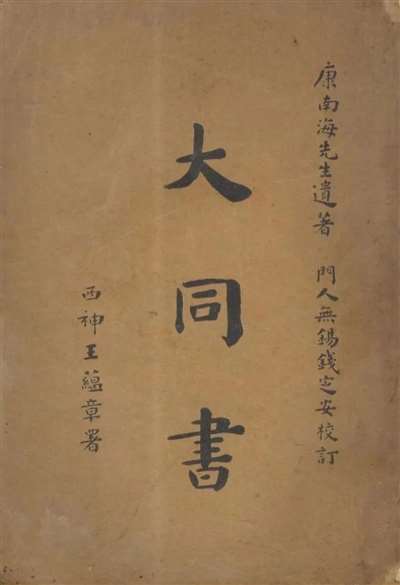 康南海先生遺著 門人無錫錢定安校訂
大同書
西神王蘊章署